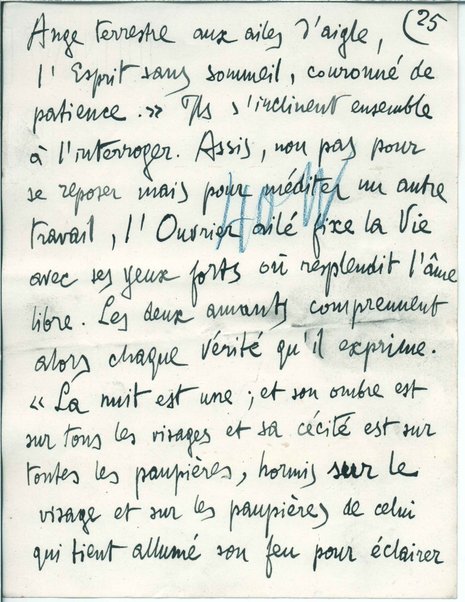 (25
Ange terrestre aux ailes d'aigle,
l'Esprit sans sommeil, couronné de
patience. » Ils s'inclinent ensemble
à l'interroger. Assis, non pas pour
se reposer mais pour méditer un autre
travail, l'Ouvrier ailé fixe la Vie
avec ses yeux forts où resplendit l'âme
libre. Les deux amants comprennent
alors chaque vérité qu'il exprime.
« La nuit est une ; et son ombre est
sur tous les visages et sa cécité est sur
toutes les paupières, hormis sur le
visage et sur les paupières de celui
qui tient allumé son feu pour éclairer